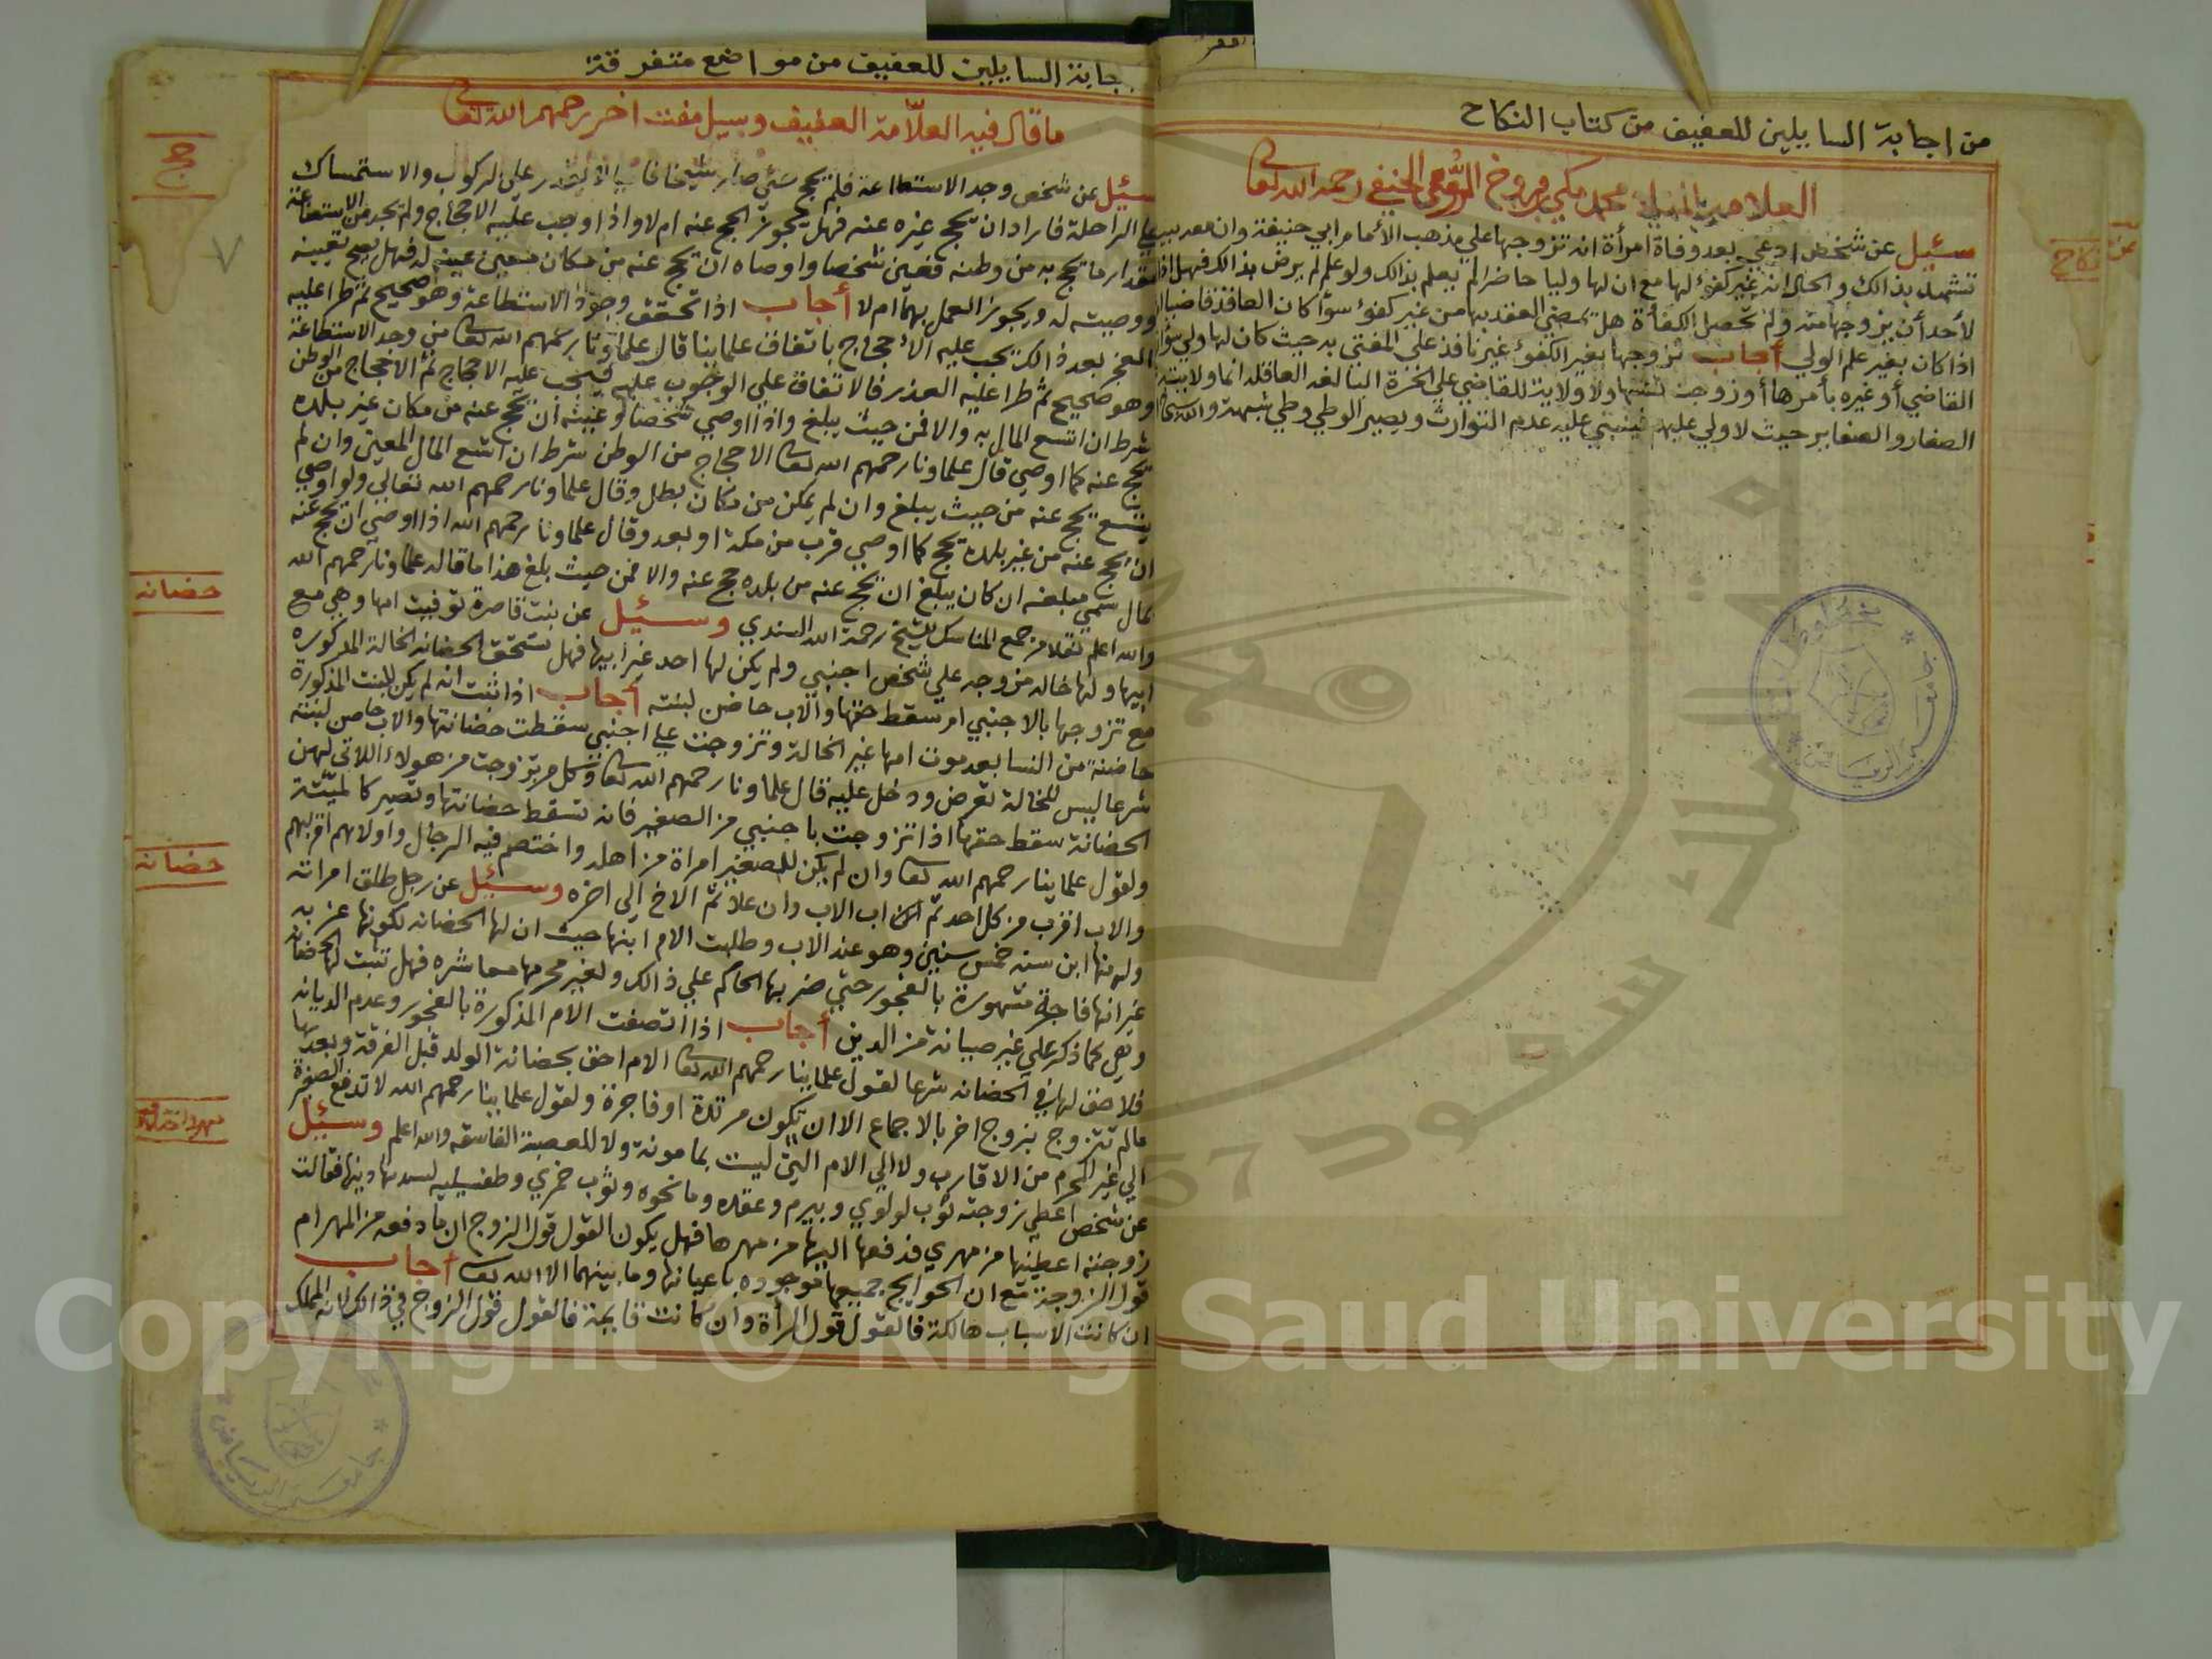 من اجابة السايلين للعفيف من كتاب النكاح
العلامة محمد مكي فروخ الحنفي رحمه الله تعالى
سئيل عن شخص ادعي بعد وفاة امرأة انه تزوجها علي مذهب الأمام ابي حنيفة وان معه بينة
تشهد بذالك والحال انه غير كفؤ لها مع ان لها وليا حاضرا لم يعلم بذالك ولو علم لم يرض بذالك فهل اذا
لأحد أن يزوجها منه ولم تحصل الكفأة هل يمضي العقد بها من غير كفؤ سوأ كان العاقد قاضيا
اذا كان بغير علم الولي أجاب تزوجها بغير الكفوء غير نافذ علي المفتي به حيث كان لها ولي سوأ
القاضي أو غيره بأمرها أو زوجت نفسها ولا ولاية للقاضي علي الحرة البالغه العاقله انما ولايته
الصغار والصغاير حيث لا ولي عليهم فينبني عليه عدم التوارث ويصير الوطي وطي شبهة والله
نكاح
جابة السايلين للعفيف من مواضع متفرقة
ما قال فيه العلّامة العفيف وسيل مفت اخر رحمهم الله تعالى
سئيل عن شخص وجد الاستطاعة فلم يحج حتى صار شيخا فانيا لا يقدر علي الركوب والاستمساك
علي الراحلة فاراد ان يحج غيره عنه فهل يجوز الحج عنه ام لا واذا وجب عليه الاحجاج ولم يجد من الاستطاعة
مقدار ما يحج به من وطنه فعين شخصا واوصاه ان يحج عنه من مكان معين عينه له فهل يصح تعيينه
ووصيته له ويجوز العمل بهما ام لا أجاب اذا تحقق وجود الاستطاعة وهو صحيح ثم طرا عليه
العجز بعد ذالك يجب عليه الأحجاج باتفاق علماينا قال علماونا رحمهم الله تعالى من وجد الاستطاعة
وهو صحيح ثم طرا عليه العذر فالاتفاق علي الوجوب عليه فيجب عليه الاحجاج ثم الاحجاج من الوطن
شرط ان اتسع المال به والا فمن حيث يبلغ واذا اوصي شخصا لو عينه ان يحج عنه من مكان غير بلده
يحج عنه كما اوصي قال علماونا رحمهم الله تعالى الاحجاج من الوطن شرط ان اتسع المال المعين وان لم
يتسع يحج عنه من حيث يبلغ وان لم يمكن من مكان بطل وقال علماونا رحمهم الله تعالي ولو اوصي
ان يحج عنه من غير بلده يحج كما اوصي قرب من مكة او بعد وقال علماونا رحمهم الله اذا اوصي ان يحج عنه
بمال سمي مبلغه ان كان يبلغ ان يحج عنه من بلده حج عنه والا فمن حيث بلغ هذا ما قاله علماونا رحمهم الله
والله اعلم نقلا من جمع المناسك للشيخ رحمة الله السندي وسئيل عن بنت قاصرة توفيت امها وهي مع
ابيها ولها خاله مزوجه علي شخص اجنبي ولم يكن لها احد غير ابيها فهل تستحق الحضانه الخالة المذكوره
مع تزوجها بالاجنبي ام سقط حقها والاب حاضن لبنته أجاب اذا ثبت انه لم يكن للبنت المذكورة
حاضنة من النسا بعد موت امها غير الخالة وتزوجت علي اجنبي سقطت حضانتها والاب حاضن لبنته
شرعا ليس للخالة تعرض ودخل عليه قال علماونا رحمهم الله تعالى وكل من تزوجت من هولاء اللاتي لهن
الحضانة سقط حقها اذا تزوجت باجنبي من الصغير فانه تسقط حضانتها وتصير كالميّتة
ولقول علماينا رحمهم الله تعالى وان لم يكن للصغير امراة من اهله واختصم فيه الرجال واولاهم اقربهم
والاب اقرب من كل احد ثم اب الاب وان علا ثم الاخ الي اخره وسئيل عن رجل طلق امراته
وله منها ابن سنه خمس سنين وهو عند الاب وطلبت الام ابنها حيث ان لها الحضانه لكونها عزبه
غير انها فاجرة مشهورة بالفجور حتي ضربها الحاكم علي ذالك ولغير محرمها معاشره فهل تثبت لها الحضانه
وهي كما ذكر علي غير صيانة من الدين أجاب اذا اتصفت الام المذكورة بالفجور وعدم الديانه
فلا حق لها في الحضانه شرعا لقول علماينا رحمهم الله تعالى الام احق بحضانة الولد قبل الفرقة وبعدها
مالم تتزوج بزوج اخر بالاجماع الا ان تكون مرتدة او فاجرة ولقول علماينا رحمهم الله لا تدفع الصغيرة
الي غير المحرم من الاقارب ولا الي الام التي ليست بمامونة ولا للعصبة الفاسقه والله اعلم وسئيل
عن شخص اعطي زوجته ثوب لولوي وبيرم وعقده وما نحوه وثوب خمري
زوجته اعطيتها من مهري فدفعها اليها من مهرها فهل يكون القول قول الزوج ان ما دفعه من المهر ام
قول الزوجة مع ان الحوايج جميعها موجوده باعيانها وما بينهما الا الله تعالى أجاب
ان كانت الاسباب هالكة فالقول قول المرأة وان كانت قايمة فالقول قول الزوج في ذالك لانه المملك
حج
حضانه
حضانه
Copyright © King Saud University